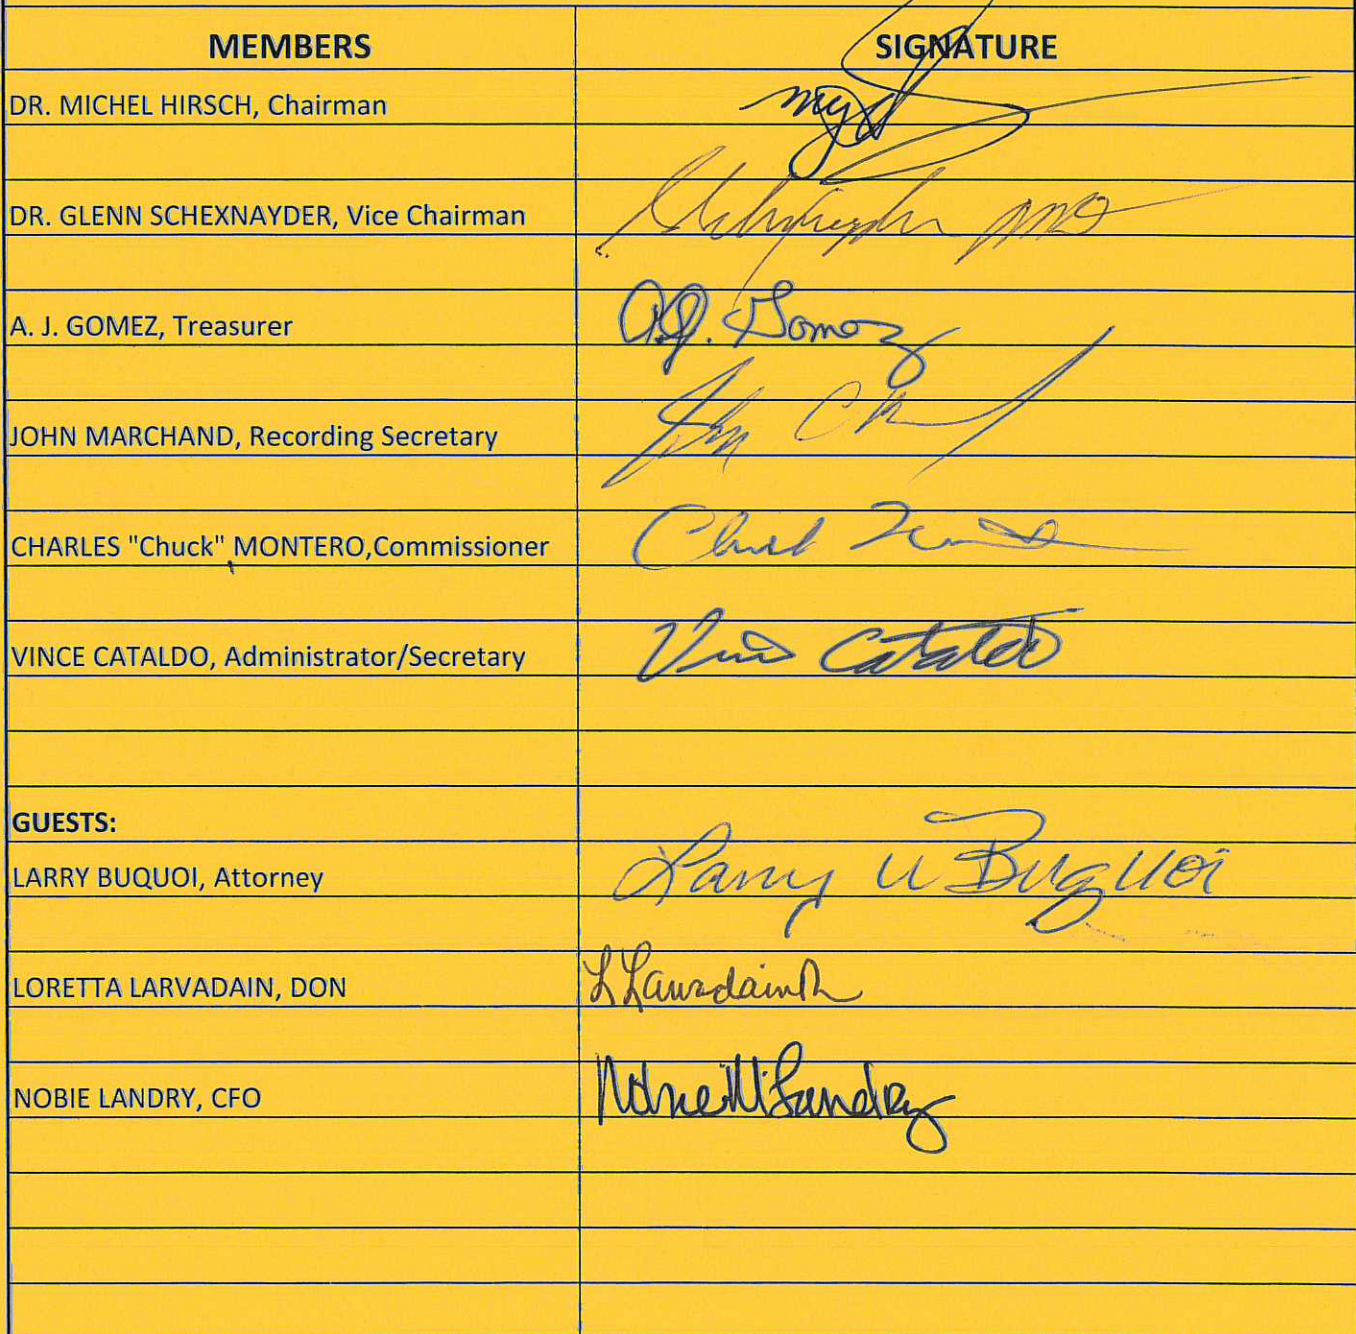 MEMBERS SIGNATURE
DR. MICHEL HIRSCH, Chairman
DR. GLENN SCHEXNAYDER, Vice Chairman
A. J. GOMEZ, Treasurer A.J. Gomez
JOHN MARCHAND, Recording Secretary John
CHARLES "Chuck" MONTERO,Commissioner Chuck
VINCE CATALDO, Administrator/Secretary Vince Cataldo
GUESTS:
LARRY BUQUOI, Attorney Larry W Buquoi
LORETTA LARVADAIN, DON L Larvadain
NOBIE LANDRY, CFO Nobie M Landry